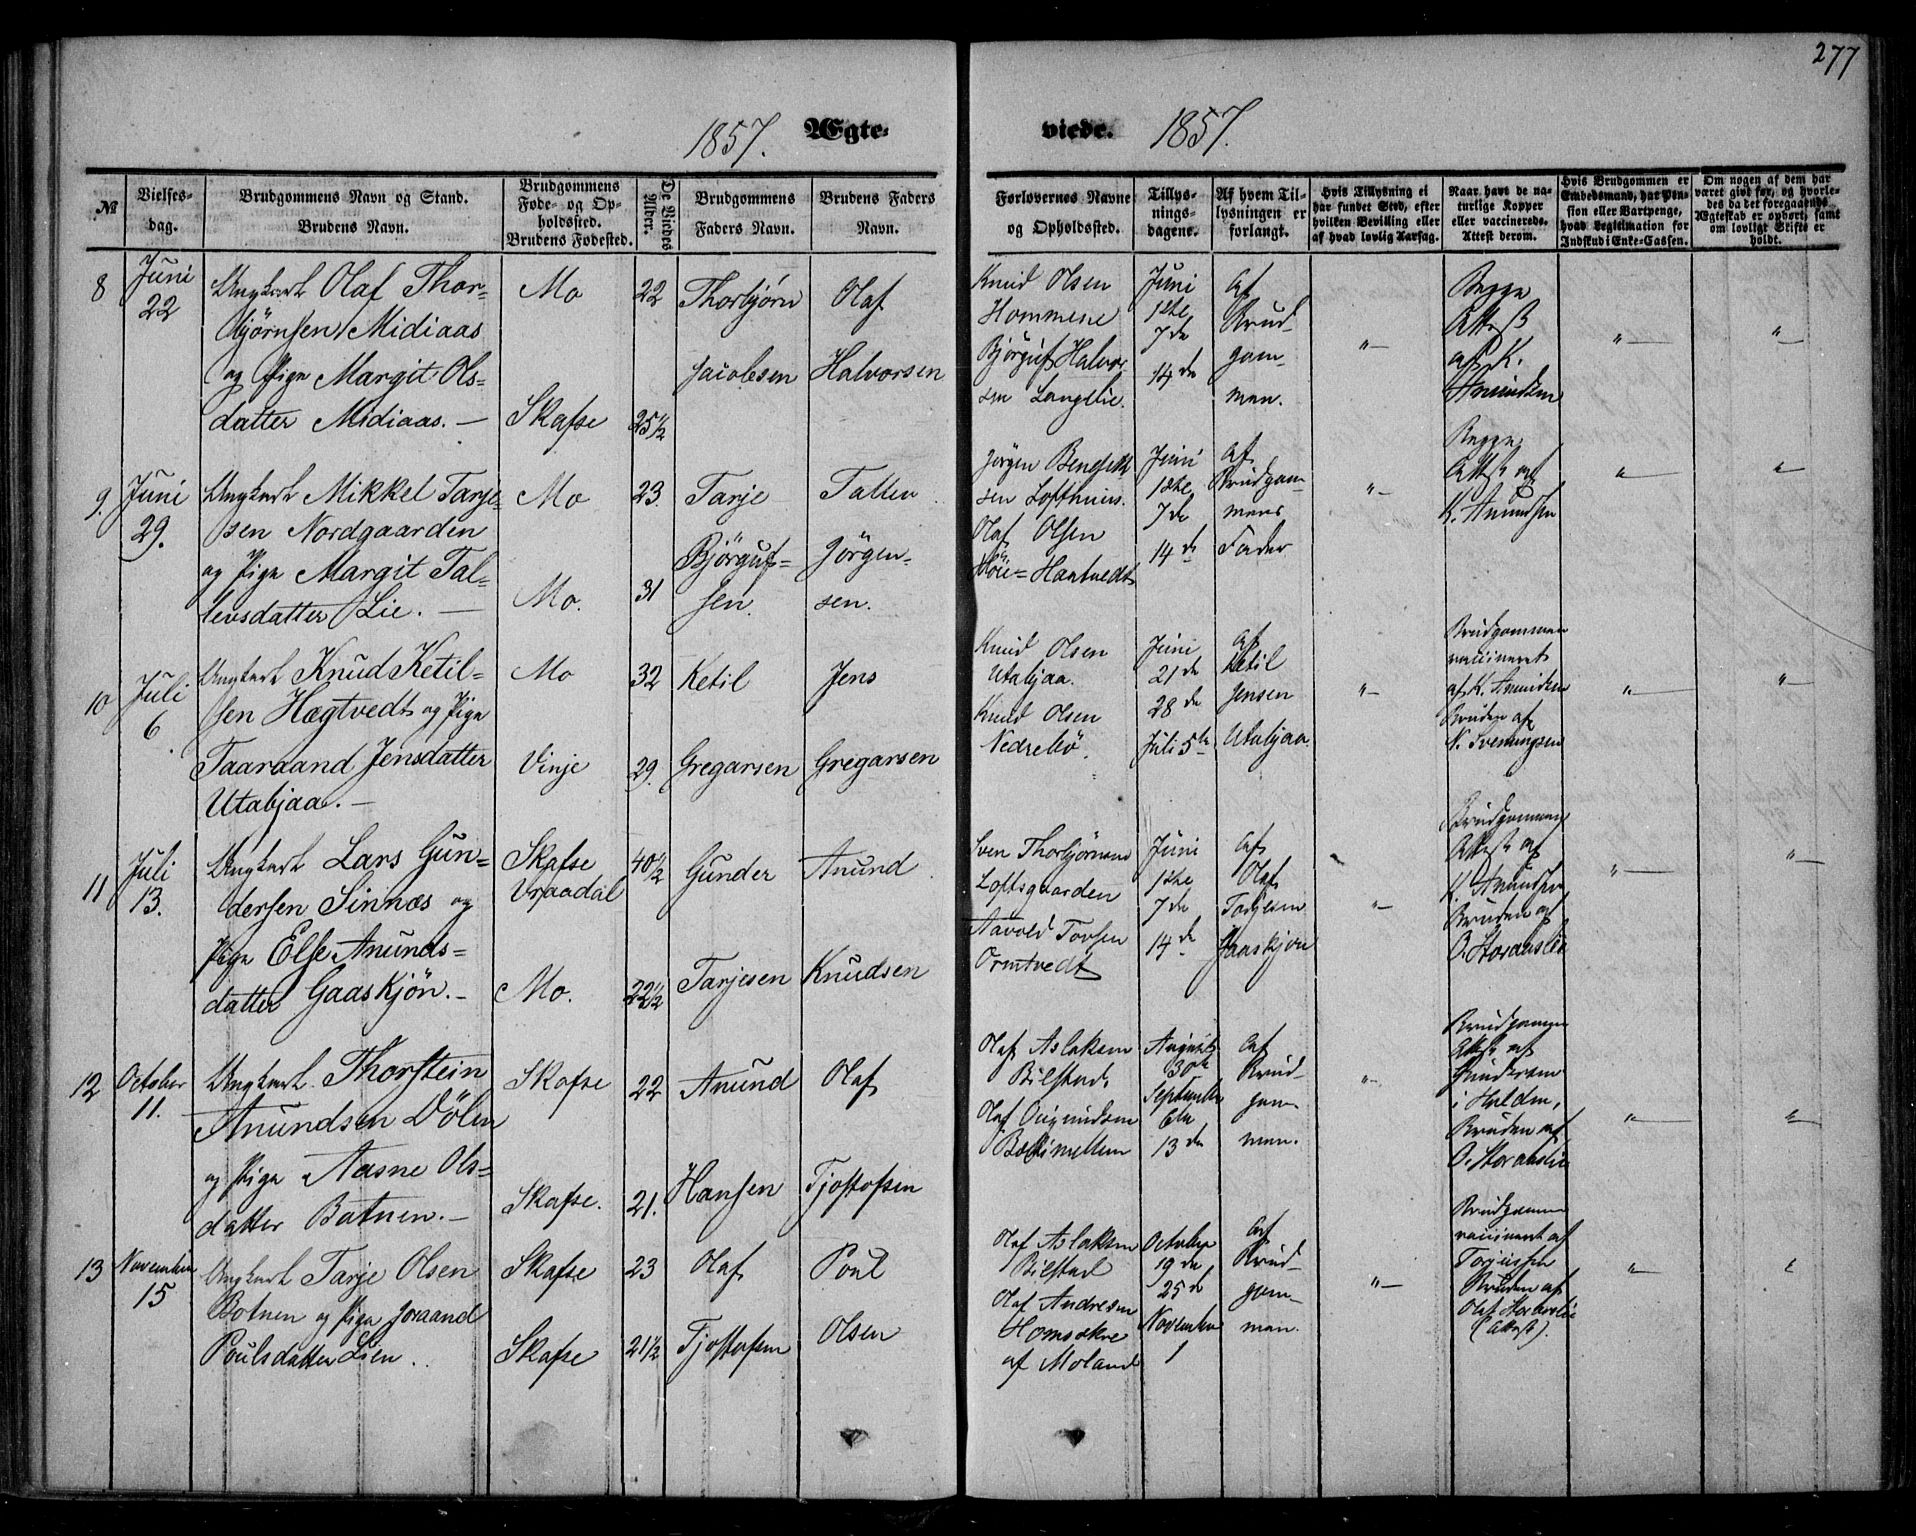 277
1857. Ægte-
viede. 1857.
№
Vielses-
dag.
Brudgommens Navn og Stand.
Brudens Navn.
Brudgommens
Føde- og Op-
holdssted.
Brudens Fødested.
De Viedes
Alder.
Brudgommens
Faders Navn.
Brudens Faders
Navn.
Forlovernes Navne
og Opholdssted.
Tillys-
nings-
dagene.
Af hvem Til-
lysningen er
forlangt.
Hvis Tillysning ei
har fundet Sted, efter
hvilken Bevilling eller
af hvad lovlig Aarsag.
Naar havt de na-
turlige Kopper
eller vaccinerede.
Attest derom.
Hvis Brudgommen er
Embedsmand, har Pen-
sion eller Vartpenge,
hvad Legitimation for
Indskud i Enke-Cassen.
Om nogen af dem har
været givt før, og hvorle-
des da det foregaaende
Ægteskab er ophørt, samt
om lovligt Skifte er
holdt.
8
Juni
22
Ungkarl Olaf Thor-
bjørnsen Midiaas
og Pige Margit Ols-
datter Midiaas. —
Mo
Skafse
22
25½
Thorbjørn
Jacobsen
Olaf
Halvorsen
Knud Olsen
Hommene
Bjørguf Halvor
sen Langelie.
Juni
1ste
7de
14de
Af
Brud-
gom-
men.
"—
Begge
Attest
af K.
Amundsen
"—
"—
9.
Juni
29.
Ungkarl Mikkel Tarje-
sen Nordgaarden
og Pige Margit Tal-
levsdatter Lie. —
Mo
Mo.
23.
31
Tarje
Bjørguf-
sen.
Tallev
Jørgen-
sen.
Jørgen
sen Lofthuus.
Olaf Olsen
Juni
1ste
7de
14de
Af
Brudgom-
mens
Fader
"—
Begge
Attest af
K. Amundsen
"—
"—
10
Juli
6.
Ungkarl Knud Ketil-
sen Hægtvedt og Pige
Taaraand Jensdatter
Utabjaa. —
Mo
Vinje
32
29.
Ketil
Gregarsen
Jens
Gregarsen
Knud Olsen
Utabjaa.
Knud Olsen
Nedrebø
Juni
21de
28de
Juli 5te
Af
Ketil
Jensen
Utabjaa.
"—
Brudgommen
vaccineret
af K. Amundsen
Bruden af
N. Svenungsen
"—
"—
11
Juli
13.
Ungkarl Lars Gun-
dersen Sinnæs og
Pige Else Anunds-
datter Gaaskjön. —
Skafse
Vraadal
Mo.
40½
22½
Gunder
Tarjesen
Anund
Knudsen
Sven Thorbjørnsen
Loftsgaarden
Aavold Tovsen
Ormtvedt
Juni
1ste
7de
14de
Af
Olaf
Tarjesen
Gaaskjøn
"—
Brudgommen
Attest af
K. Amundsen
Bruden af
O. Storaaslie
"—
"—
12
October
11.
Ungkarl Thorstein
Anundsen Dölen
og Pige Aasne Ols-
datter Botnen. —
Skafse
Skafse.
22
21.
Anund
Hansen
Olaf
Tjostofsen
Olaf Aslaksen
Bilstad,
Olaf
August
30te
September
6te
13de
Af
Brud-
gom-
men.
"—
Brudgommen
Attest af
Gundersen
i Halden,
Bruden af
O. Storaaslie
"—
"
13
November
15
Ungkarl Tarje Olsen
Botnen og Pige Joraand
Poulsdatter Lien.
Skafse
Skafse
23
21½
Olaf
Tjostofsen
Poul
Olsen
Olaf Aslaksen
Bilstad
Olaf Andresen
Homsakre
af Moland
October
19de
25de
November
1
Af
Brud-
gom-
men.
"—
Brudgommen
vaccineret af
Bruden af
Olaf Storaaslie
(Attest).
"—
"